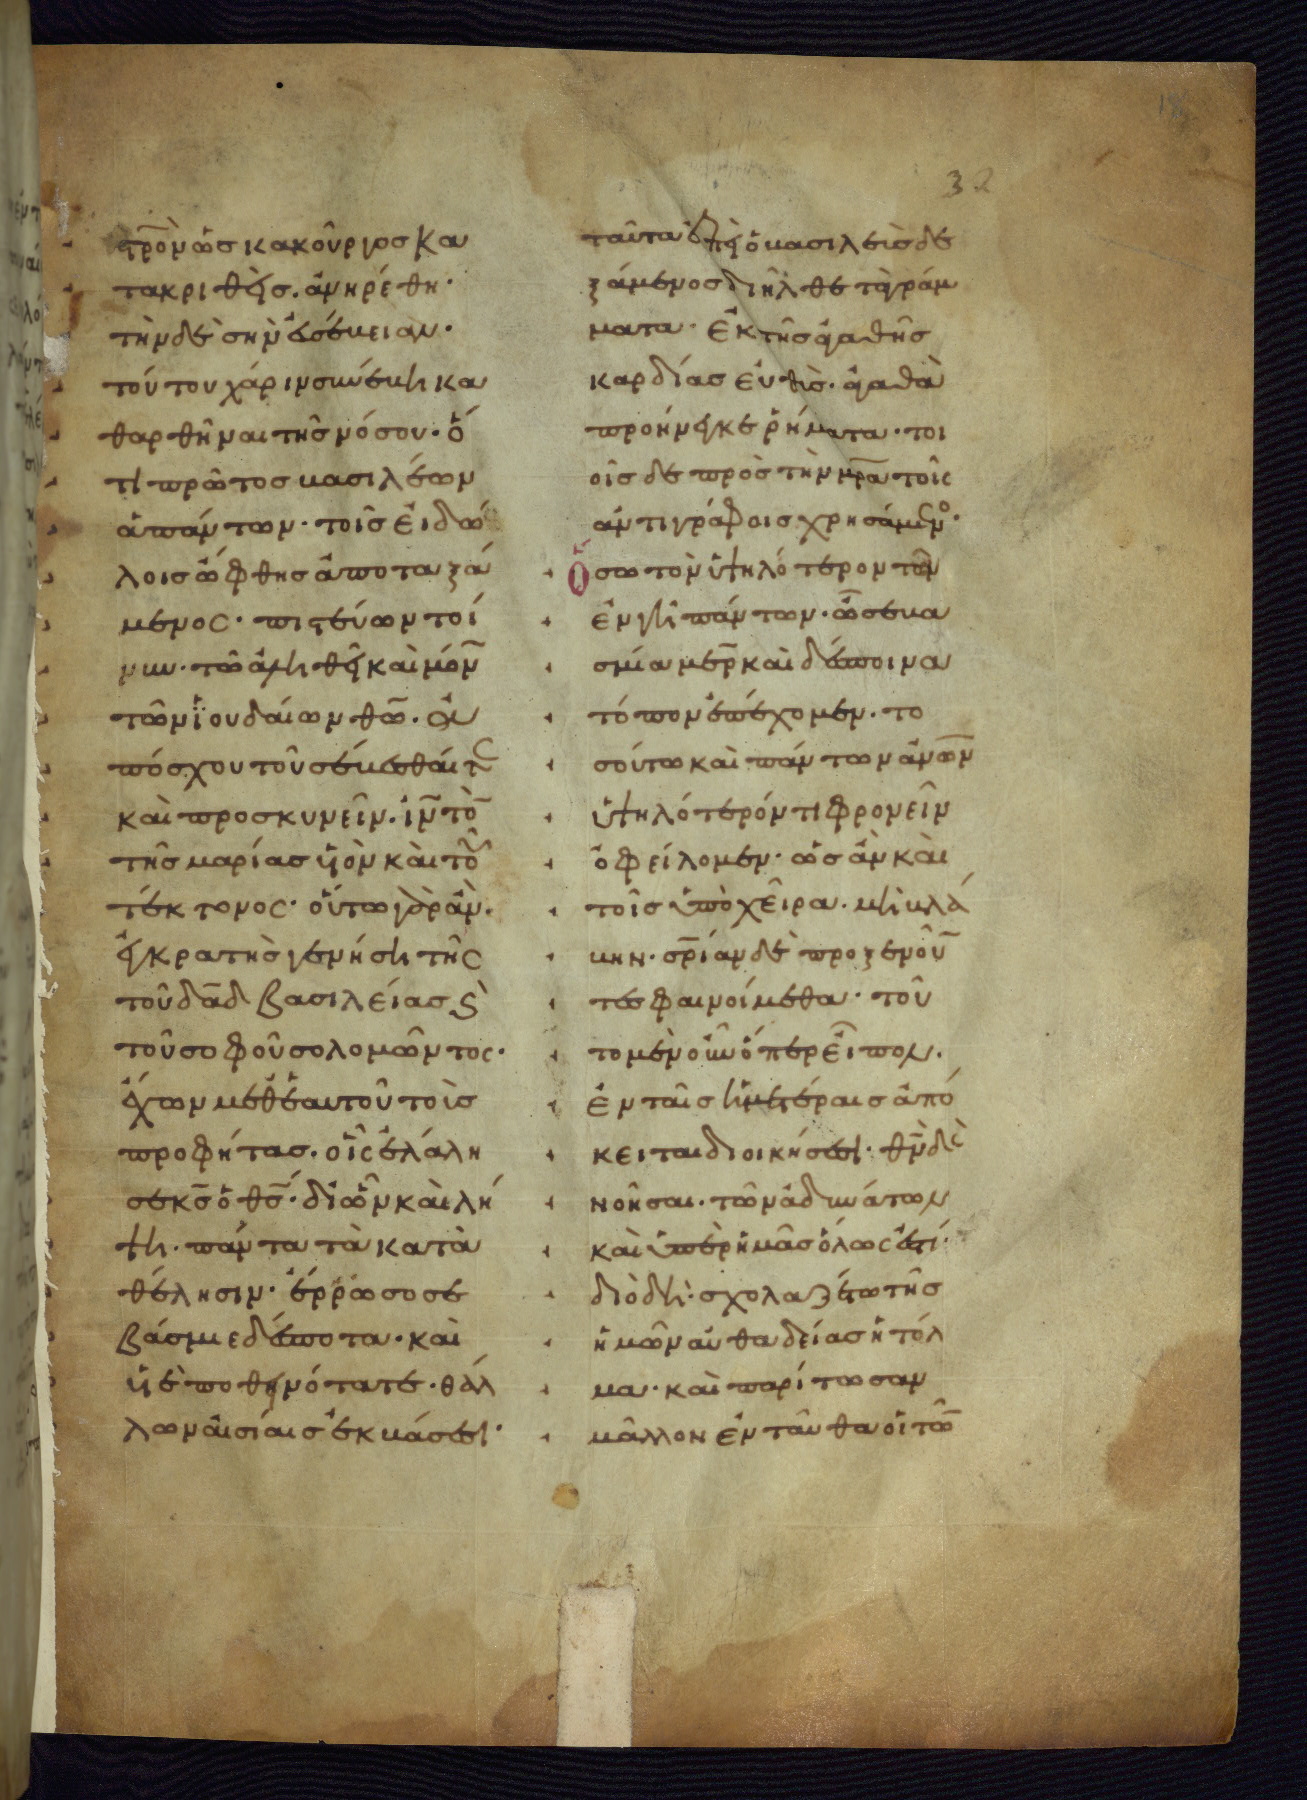 32
τρον ὡς κακοῦργος κα
τακριθεὶς. ἀνηρέθη·
τὴν δὲ σὴν εὐσέβειαν·
τούτου χάριν συνέβη κα
θαρθῆναι τῆς νόσου· ὅ
τι πρῶτος βασιλέων
ἁπάντων· τοῖς εἰδώ
λοις ὤφθης ἀποταξά
μενος· πιστεύων τοί
νυν· τῶ ἀληθεῖ καὶ μόνω
τῶν ἰουδαίων θω̅· ἀ
πόσχου τοῦ σέβεσθαί τε
καὶ προσκυνεῖν. ιν̅ τὸν
τῆς μαρίας υἱὸν καὶ τοῦ
τέκτονος· οὕτω γὰρ ἂν·
ἐγκρατὴς γενήση τῆς
τοῦ δα̅δ βασιλείας καὶ
τοῦ σοφοῦ σολομῶντος·
ἔχων μεθ' ἑαυτοῦ τοὺς
προφήτας. οἷς ἐλάλη
σε κς̅ ὁ θς̅· δι' ὧν καὶ λή
ψη· πάντα τὰ κατὰ
θέλησιν· ἔρρωσό σε
βάσμιε δέσποτα· καὶ
υἱὲ ποθεινότατε· θάλ
λων αἰσίαις ἐκβάσεσι·
ταῦτα ὁ βασιλεὺς δε
ξάμενος διῆλθε τὰ γράμ
ματα· ἐκ τῆς ἀγαθῆς
καρδίας εὐθὺς. ἀγαθὰ
προήνεγκε ῥήματα· τοι
οῖσδε πρὸς τὴν μρ̅α τοῖς
ἀντιγράφοις χρησάμενος·
Ὅσω τὸν ὑψηλότερον τῶν
ἐν γῆ πάντων· ὦ σεβα
σμία μερ̅ καὶ δέσποινα
τόπον ἐπέχομεν. το
σούτω καὶ πάντων ανω̅ν
ὑψηλότερόν τι φρονεῖν
ὀφείλομεν· ὡς ἂν καὶ
τοῖς ὑπὸ χεῖρα. μὴ βλά
βην· σρ̅ίαν δὲ προξενοῦν
τες φαινοίμεθα· τοῦ
το μὲν οὖν ὅπερ εἶπον.
ἐν ταῖς ἡμετέραις ἀπό
κειται διοικήσεσι· θν̅ δὲ
νοῆσαι· τῶν ἀδυνάτων
καὶ ὑπὲρ ἡμᾶς ὅλως ἐστί·
διὸ δὴ· σχολαζέτω τῆς
ἡμῶν αὐθαδείας ἡ τόλ
μα· καὶ παρίτωσαν
μᾶλλον ἐνταῦθα οἱ τῶν